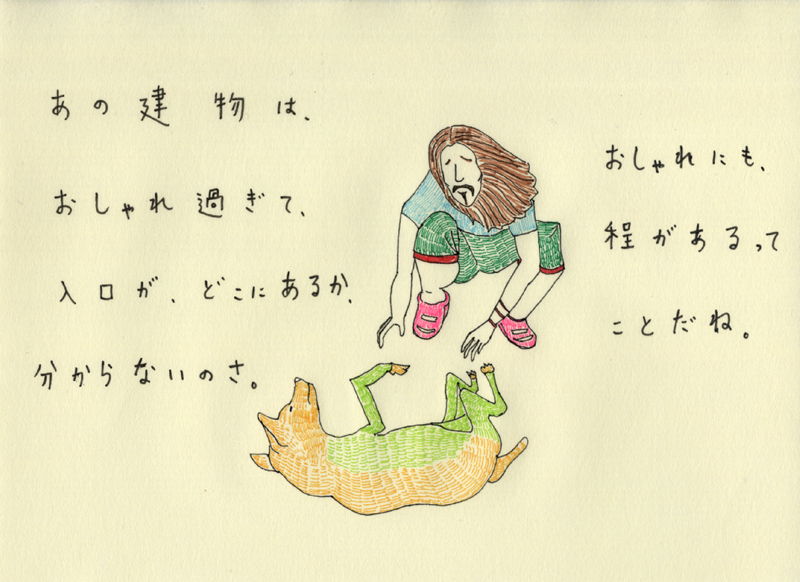 あの建物は、
おしゃれ過ぎて、
入口が、どこにあるか、
分からないのさ。
おしゃれにも、
程があるって
ことだね。